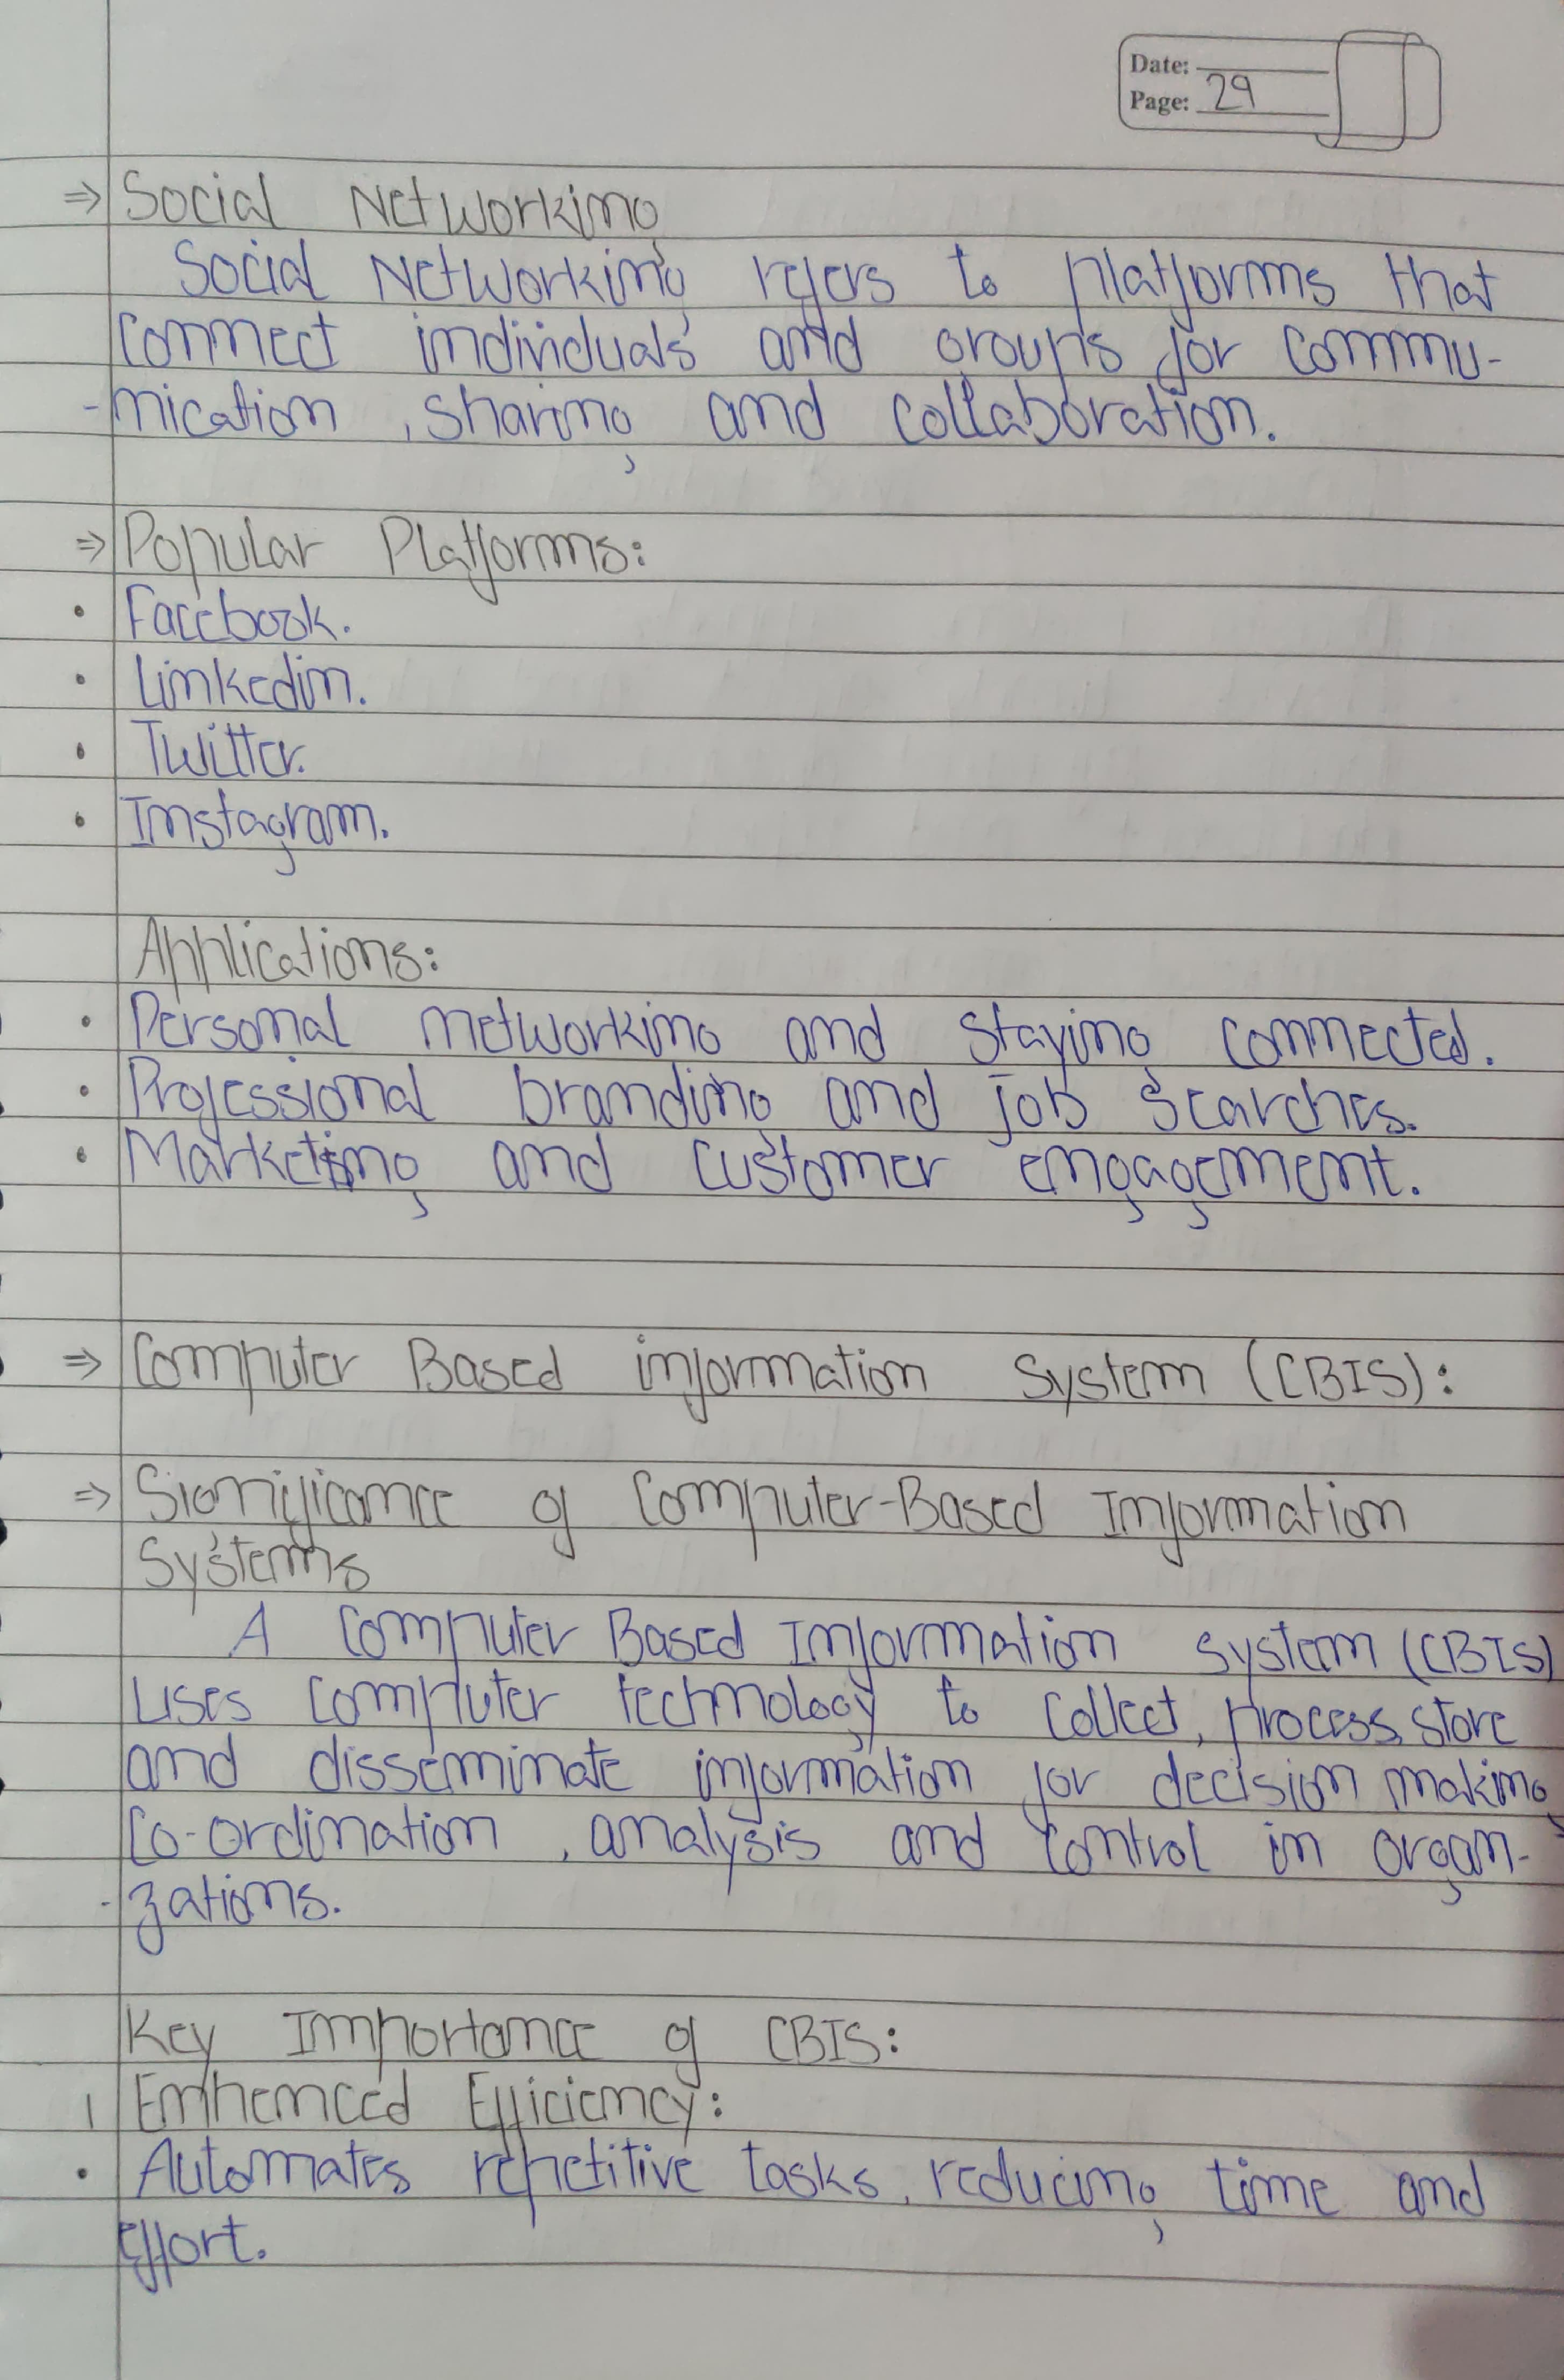 Date:
Page: 29
⇒ Social Networking
Social Networking refers to platforms that
connect individuals and groups for commu-
-nication, sharing and collaboration.
⇒ Popular Platforms:
• Facebook.
• Linkedin.
• Twitter.
• Instagram.
Applications:
• Personal networking and staying connected.
• Professional branding and job searches.
• Marketing and customer engagement.
⇒ Computer Based information System (CBIS):
⇒ Significance of Computer-Based Information
Systems
A Computer Based Information System (CBIS)
uses computer technology to collect, process, store
and disseminate information for decision making,
Co-ordination, analysis and control in organ-
-zations.
Key Importance of CBIS:
1 Enhenced Efficiency:
• Automates repetitive tasks, reducing time and
effort.